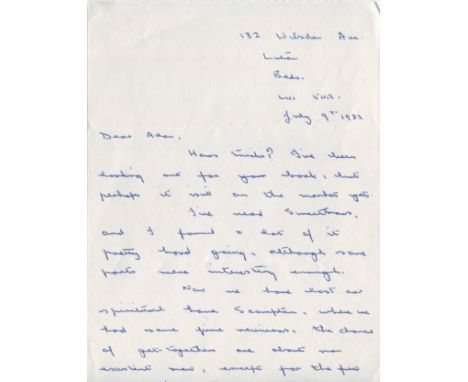 132 Wilsden Ave.
Luton
Beds.
LU1 5HR.
July 9TH 1983
Dear Alan,
Hows tricks? I've been
looking out for your book, but
perhaps it isn't on the market yet.
I've read Sweetman,
and I found a lot of it
pretty hard going, although some
parts were interesting enough.
Now we have lost our
spiritual home Scampton, where we
had some fine reunions, the chance
of get-togethers are about non
existent now, except for the few